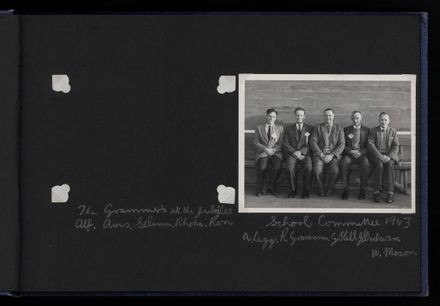 The Grammers at the Jubilee
Alf, Avis, Selma, Rhoda, Ron
School Committee 1963
A. Legg, R. Grammer, G. Hall, J.
W. Mason